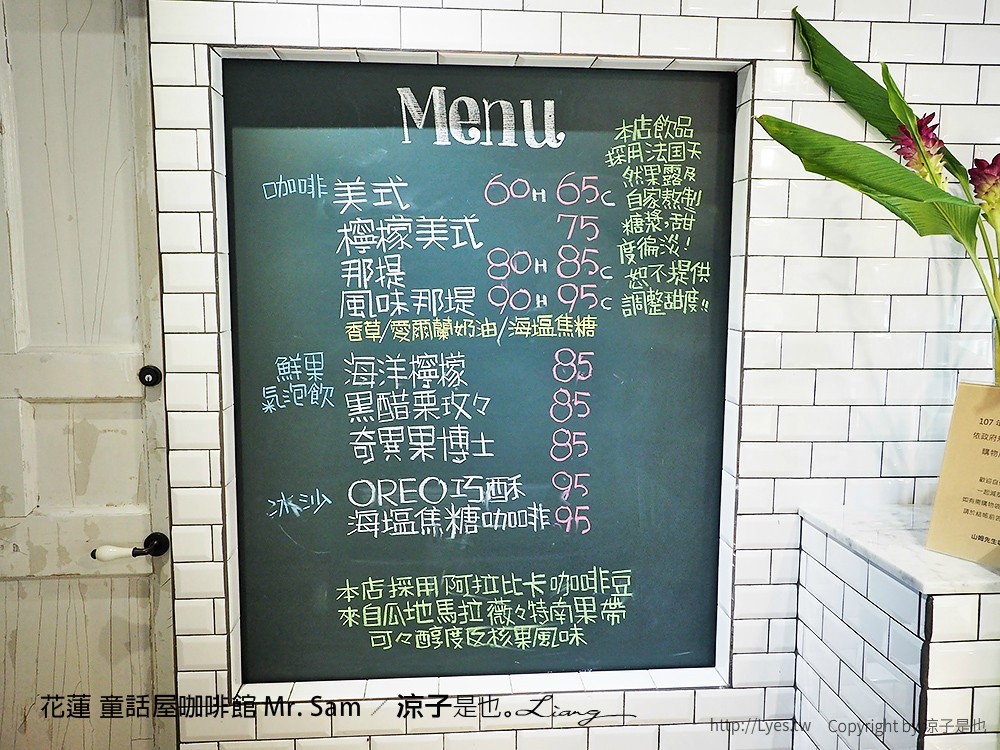 Menu
咖啡 美式 60H 65C
檸檬美式 75
那提 80H 85C
風味那提 90H 95C
香草/愛爾蘭奶油/海塩焦糖
鮮果
氣泡飲
海洋檸檬 85
黑醋栗玫々 85
奇異果博士 85
冰沙
OREO巧酥 95
海塩焦糖咖啡 95
本店飲品
採用法国天
然果露及
自家熬制
糖漿,甜
度偏淡!
恕不提供
調整甜度!!
本店採用阿拉比卡咖啡豆
來自瓜地馬拉薇々特南果帶
可々醇度及核果風味
107 年
依政府
購物
山姆先生
花蓮 童話屋咖啡館 Mr. Sam / 涼子是也。Liang
http://Lyes.tw Copyright by 涼子是也